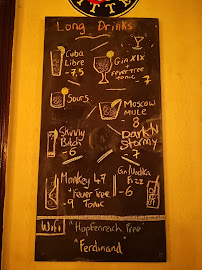 ITTE
Long Drinks
Cuba
Libre
- 7,5
Gin XIX
Fever Tree
Tonic
- 7
Sours
Moscow
Mule
- 8
Skinny
Bitch
- 6
Dark'n
Stormy
- 7
Monkey 47
Fever Tree
Tonic
- 9
Gin/Vodka
Fizz
- 6
WiFi "Hopfenreich Free"
"Ferdinand"